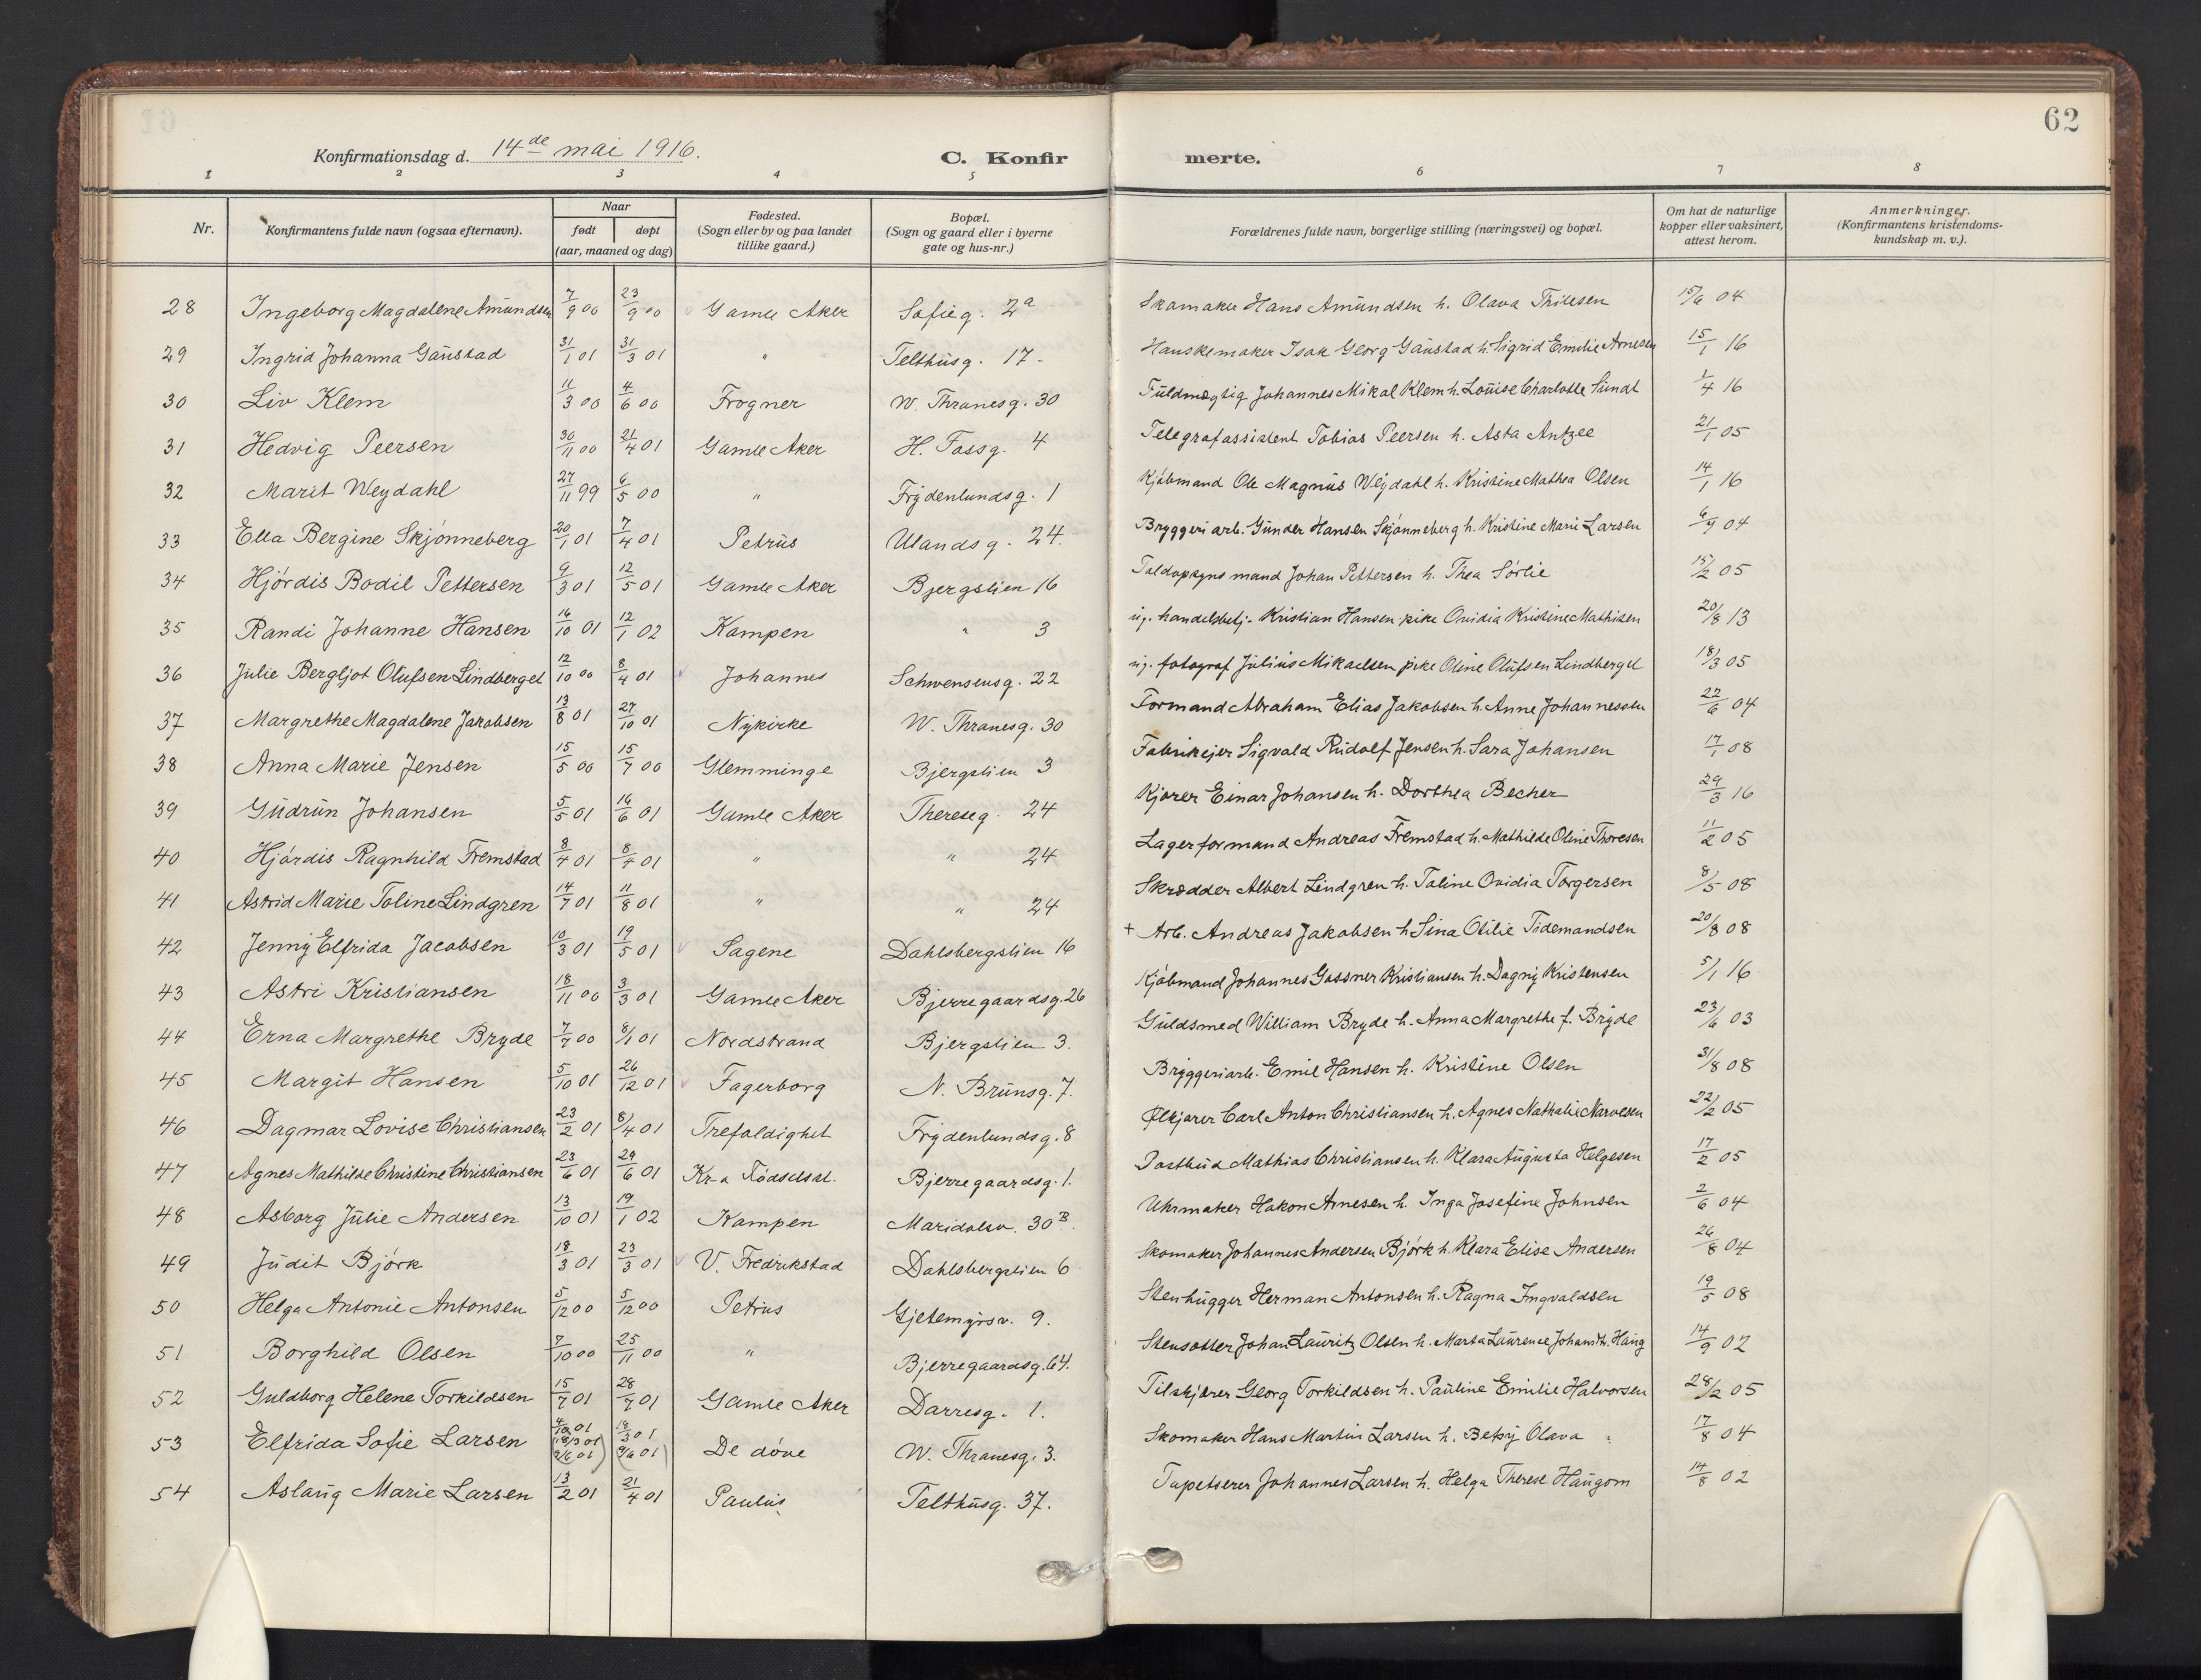 62
Konfirmationsdag d. 14de mai 1916.
C. Konfirmerte.
1 2 3 4 5 6 7 8
Nr. | Konfirmantens fulde navn (ogsaa efternavn). | Naar født døpt (aar, maaned og dag) | Fødested. (Sogn eller by og paa landet tillike gaard.) | Bopæl. (Sogn og gaard eller i byerne gate og hus-nr.) | Forældrenes fulde navn, borgerlige stilling (næringsvei) og bopæl. | Om hat de naturlige kopper eller vaksinert, attest herom. | Anmerkninger. (Konfirmantens kristendomskundskap m. v.).
28 Ingeborg Magdalene Amundsen 7/9 00 23/9 00 Gamle Aker Sofieg. 2a Skomaker Hans Amundsen h. Olava 15/6 04
29 Ingrid Johanna Gaustad 31/1 01 31/3 01 " Telthusg. 17- Hanskemaker Isak Georg Gaustad h. Sigrid Emilie Arnesen 15/1 16
30 Liv Klem 11/3 00 4/6 00 Frogner W. Thranesg. 30 Fuldmægtig Johannes Mikal Klem h. Louise Charlotte Sundt 1/4 16
31 Hedvig Peersen 30/11 00 21/4 01 Gamle Aker H. Fossg. 4 Telegrafassistent Tobias Peersen h. Asta Antzee 21/1 05
32 Marit Weydahl 27/11 99 6/5 00 " Frydenlundsg. 1 Kjøbmand Ole Magnus Weydahl h. Kristine Mathea Olsen 14/1 16
33 Ella Bergine Skjønneberg 20/1 01 7/4 01 Petrus Ulandsg. 24. Bryggeriarb. Gunder Hansen Skjønneberg h. Kristine Marie Larsen 6/9 04
34 Hjørdis Bodil Pettersen 9/3 01 12/5 01 Gamle Aker Bjergslien 16 Toldopsyns mand Johan Pettersen h. Thea Sørlie 15/2 05
35 Randi Johanne Hansen 16/10 01 12/1 02 Kampen " 3 ug. handelsbetj- Kristian Hansen pike Ovidia Kristine Mathisen 20/8 13
36 Julie Bergljot Olufsen Lindberget 12/10 00 8/4 01 Johannes Schwensensg. 22 ug. fotograf Julius Mikaelsen pike Oline Olufsen Lindberget 18/3 05
37 Margrethe Magdalene Jakobsen 13/8 01 27/10 01 Nykirke W. Thranesg. 30 Formand Abraham Elias Jakobsen h. Anne Johannessen 22/6 04
38 Anna Marie Jensen 15/5 00 15/7 00 Glemminge Bjergslien 3 Fabrikejer Sigvald Rudolf Jensen h. Sara Johansen 17/1 08
39 Gudrun Johansen 5/5 01 16/6 01 Gamle Aker Thereseg. 24 Kjører Einar Johansen h. Dorthea Becher 29/3 16
40 Hjørdis Ragnhild Fremstad 8/4 01 8/7 01 " " 24 Lagerformand Andreas Fremstad h. Mathilde Oline Thoresen 11/2 05
41 Astrid Marie Toline Lindgren 14/7 01 11/8 01 " " 24 Skrædder Albert Lindgren h. Toline Ovidia Torgersen 8/5 08
42 Jenny Elfrida Jacobsen 10/3 01 19/5 01 Sagene Dahlsbergslien 16 + Arb. Andreas Jakobsen h. Sina Otilie Tidemandsen 20/8 08
43 Astri Kristiansen 18/11 00 3/3 01 Gamle Aker Bjerregaardsg. 26 Kjøbmand Johannes Gossner Kristiansen h. Dagny Kristensen 5/1 16
44 Erna Margrethe Bryde 7/7 00 8/1 01 Nordstrand Bjergslien 3. Guldsmed William Bryde h. Anna Margrethe f. Bryde 23/6 03
45 Margit Hansen 5/10 01 26/12 01 Fagerborg N. Brunsg. 7. Bryggeriarb. Emil Hansen h. Kristine Olsen 31/8 08
46 Dagmar Lovise Christiansen 23/2 01 8/4 01 Trefoldighet Frydenlundsg. 8 Ølkjører Carl Anton Christiansen h. Agnes Nathalie Narvesen 22/2 05
47 Agnes Mathilde Christine Christiansen 23/6 01 29/6 01 Kr-a Fødselsst. Bjerregaardsg. 1. Postbud Mathias Christiansen h. Klara Augusta Helgesen 17/2 05
48 Asborg Julie Andersen 13/10 01 19/1 02 Kampen Maridalsv. 30B. Uhrmaker Hakon Arnesen h. Inga Josefine Johnsen 2/6 04
49 Judit Bjørk 18/3 01 23/3 01 V. Fredrikstad Dahlsbergslien 6 Skomaker Johannes Andersen Bjørk h. Klara Elise Andersen 26/8 04
50 Helga Antonie Antonsen 5/12 00 5/12 00 Petrus Gjetemyrsv. 9. Stenhugger Herman Antonsen h. Ragna Ingvaldsen 19/5 08
51 Borghild Olsen 7/10 00 25/11 00 " Bjerregaardsg. 64. Stensætter Johan Lauritz Olsen h. Marta Laurence Haug 14/9 02
52 Guldborg Helene Torkildsen 15/7 01 28/7 01 Gamle Aker Darresg. 1. Tilskjærer Georg Torkildsen h. Pauline Emilie Halvorsen 28/2 05
53 Elfrida Sofie Larsen 18/3 01 De døve W. Thranesg. 3. Skomaker Hans Martin Larsen h. Betsy Olava 17/8 04
54 Aslaug Marie Larsen 13/2 01 21/4 01 Paulus Telthusg. 37. Tapetserer Johannes Larsen h. Helga Therese Haugom 14/8 02